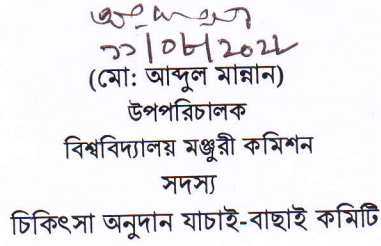 (মো: আব্দুল মান্নান)
উপপরিচালক
বিশ্ববিদ্যালয় মঞ্জুরী কমিশন
সদস্য
চিকিৎসা অনুদান যাচাই-বাছাই কমিটি